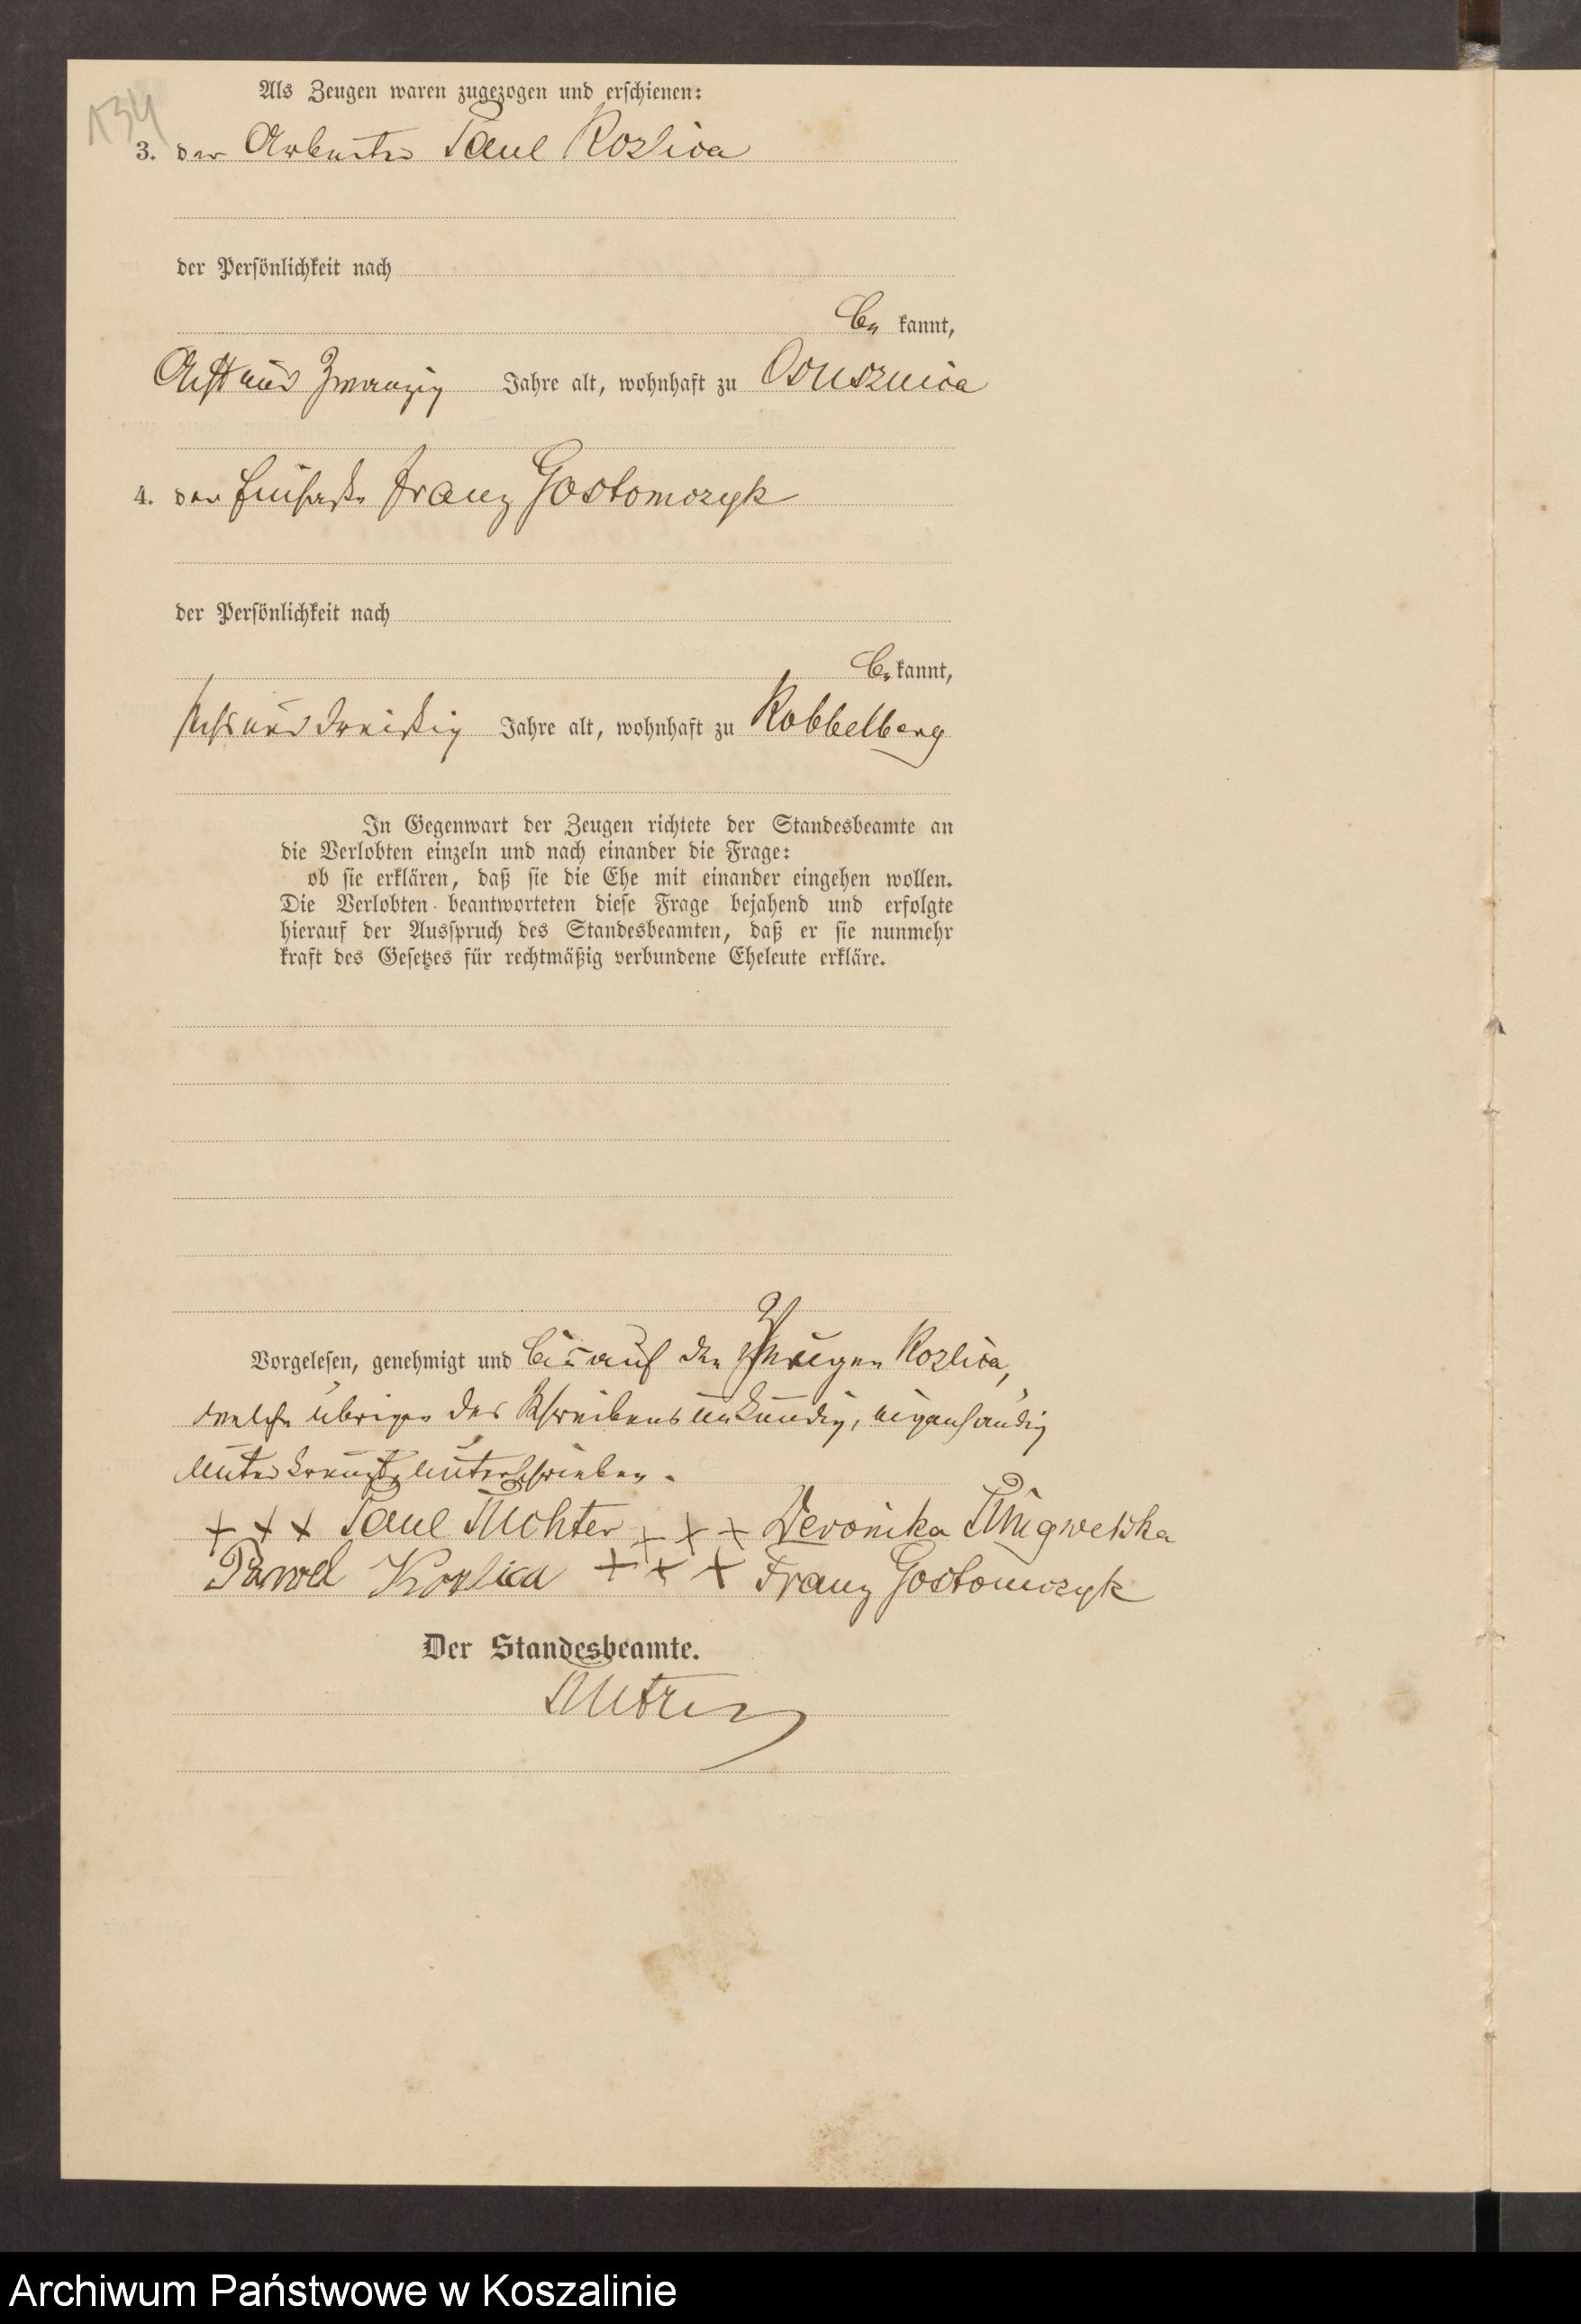 134
Als Zeugen waren zugezogen und erschienen:
3. der Arbeiter Paul Kozlica
der Persönlichkeit nach
be kannt,
Acht und zwanzig Jahre alt, wohnhaft zu Ossusznica
4. der Einsasse Franz Gostomczyk
der Persönlichkeit nach
be kannt,
sechs und dreißig Jahre alt, wohnhaft zu Robbelberg
In Gegenwart der Zeugen richtete der Standesbeamte an
die Verlobten einzeln und nach einander die Frage:
ob sie erklären, daß sie die Ehe mit einander eingehen wollen.
Die Verlobten beantworteten diese Frage bejahend und erfolgte
hierauf der Ausspruch des Standesbeamten, daß er sie nunmehr
kraft des Gesetzes für rechtmäßig verbundene Eheleute erkläre.
Vorgelesen, genehmigt und bis auf den Zeugen Kozlica,
welche übrigen des Schreibens unkundig, eigenhändig
unterkreuzt, unterschrieben.
+ + + Paul Richter + + + Veronika
Pawel Kozlica + + + Franz Gostomczyk
Der Standesbeamte.